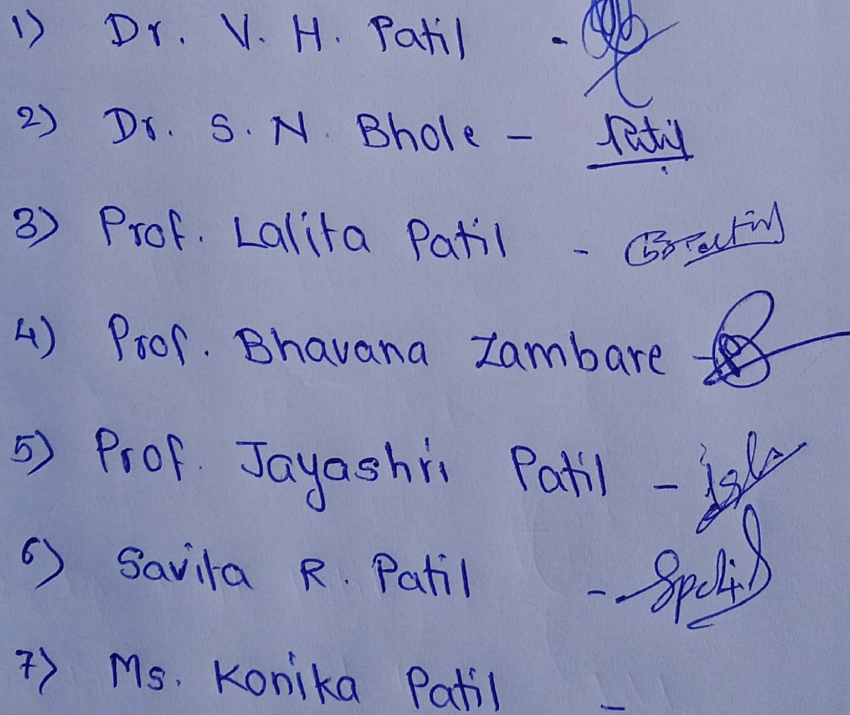 1) Dr. V. H. Patil -
2) Dr. S. N. Bhole -
3) Prof. Lalita Patil -
4) Prof. Bhavana Zambare -
5) Prof. Jayashri Patil -
6) Savita R. Patil -
7) Ms. Konika Patil -